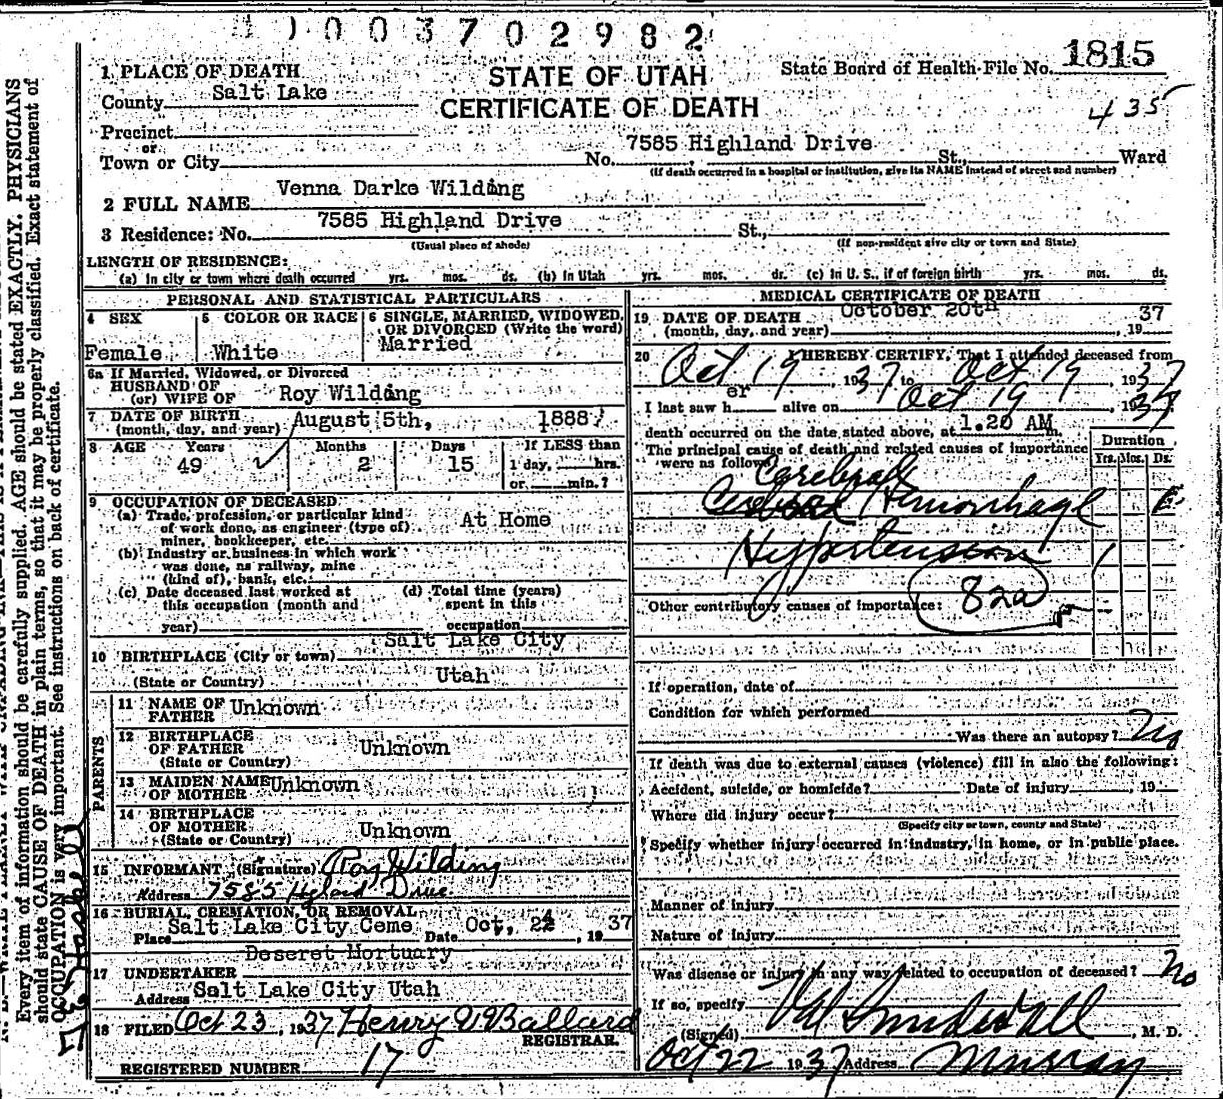 1003702982
STATE OF UTAH
CERTIFICATE OF DEATH
State Board of Health-File No. 1815
435
1 PLACE OF DEATH
County Salt Lake
Precinct
or
Town or City No. 7585 Highland Drive St., Ward
(If death occurred in a hospital or institution, give its NAME instead of street and number)
2 FULL NAME Venna Darke Wilding
3 Residence: No. 7585 Highland Drive St.,
(Usual place of abode) (If non-resident give city or town and State)
LENGTH OF RESIDENCE:
(a) In city or town where death occurred yrs. mos. ds. (b) In Utah yrs. mos. ds. (c) In U. S., if of foreign birth yrs. mos. ds.
PERSONAL AND STATISTICAL PARTICULARS
4 SEX 5 COLOR OR RACE 6 SINGLE, MARRIED, WIDOWED, OR DIVORCED (Write the word)
Female White Married
6a If Married, Widowed, or Divorced
HUSBAND OF
(or) WIFE OF Roy Wilding
7 DATE OF BIRTH August 5th, 1888
(month, day, and year)
8 AGE Years Months Days If LESS than
49 2 15 1 day, hrs.
or min.?
9 OCCUPATION OF DECEASED
(a) Trade, profession, or particular kind
of work done, as engineer (type of) At Home
miner, bookkeeper, etc.
(b) Industry or business in which work
was done, as railway, mine
(kind of), bank, etc.
(c) Date deceased last worked at (d) Total time (years)
this occupation (month and spent in this
year) occupation
10 BIRTHPLACE (City or town) Salt Lake City
(State or Country) Utah
PARENTS
11 NAME OF FATHER Unknown
12 BIRTHPLACE
OF FATHER Unknown
(State or Country)
13 MAIDEN NAME
OF MOTHER Unknown
14 BIRTHPLACE
OF MOTHER Unknown
(State or Country)
15 INFORMANT (Signature) Roy Wilding
Address 7585 Hyland Drive
16 BURIAL, CREMATION, OR REMOVAL
Place Salt Lake City Ceme Date Oct, 24, 1937
17 UNDERTAKER Deseret Mortuary
Address Salt Lake City Utah
18 FILED Oct 23, 1937 Henry W Ballard
REGISTRAR.
REGISTERED NUMBER 17
MEDICAL CERTIFICATE OF DEATH
19 DATE OF DEATH October 20th 37
(month, day, and year) , 19
20 I HEREBY CERTIFY, That I attended deceased from
Oct 19, 1937 to Oct 19, 1937
I last saw her alive on Oct 19, 1937
death occurred on the date stated above, at 1.20 AM m.
The principal cause of death and related causes of importance
were as follows:
Duration
Yrs. Mos. Ds.
Cerebral
Cerebral Hemorrhage
Hypertension
82a
Other contributory causes of importance:
If operation, date of
Condition for which performed
Was there an autopsy? No
If death was due to external causes (violence) fill in also the following:
Accident, suicide, or homicide? Date of injury , 19
Where did injury occur?
(Specify city or town, county and State)
Specify whether injury occurred in industry, in home, or in public place.
Manner of injury
Nature of injury
Was disease or injury in any way related to occupation of deceased? No
If so, specify
(Signed) Val Sundwall, M. D.
Oct 22 1937 Address Murray
Every item of information should be carefully supplied. AGE should be stated EXACTLY. PHYSICIANS
should state CAUSE OF DEATH in plain terms, so that it may be properly classified. Exact statement of
OCCUPATION is very important. See instructions on back of certificate.